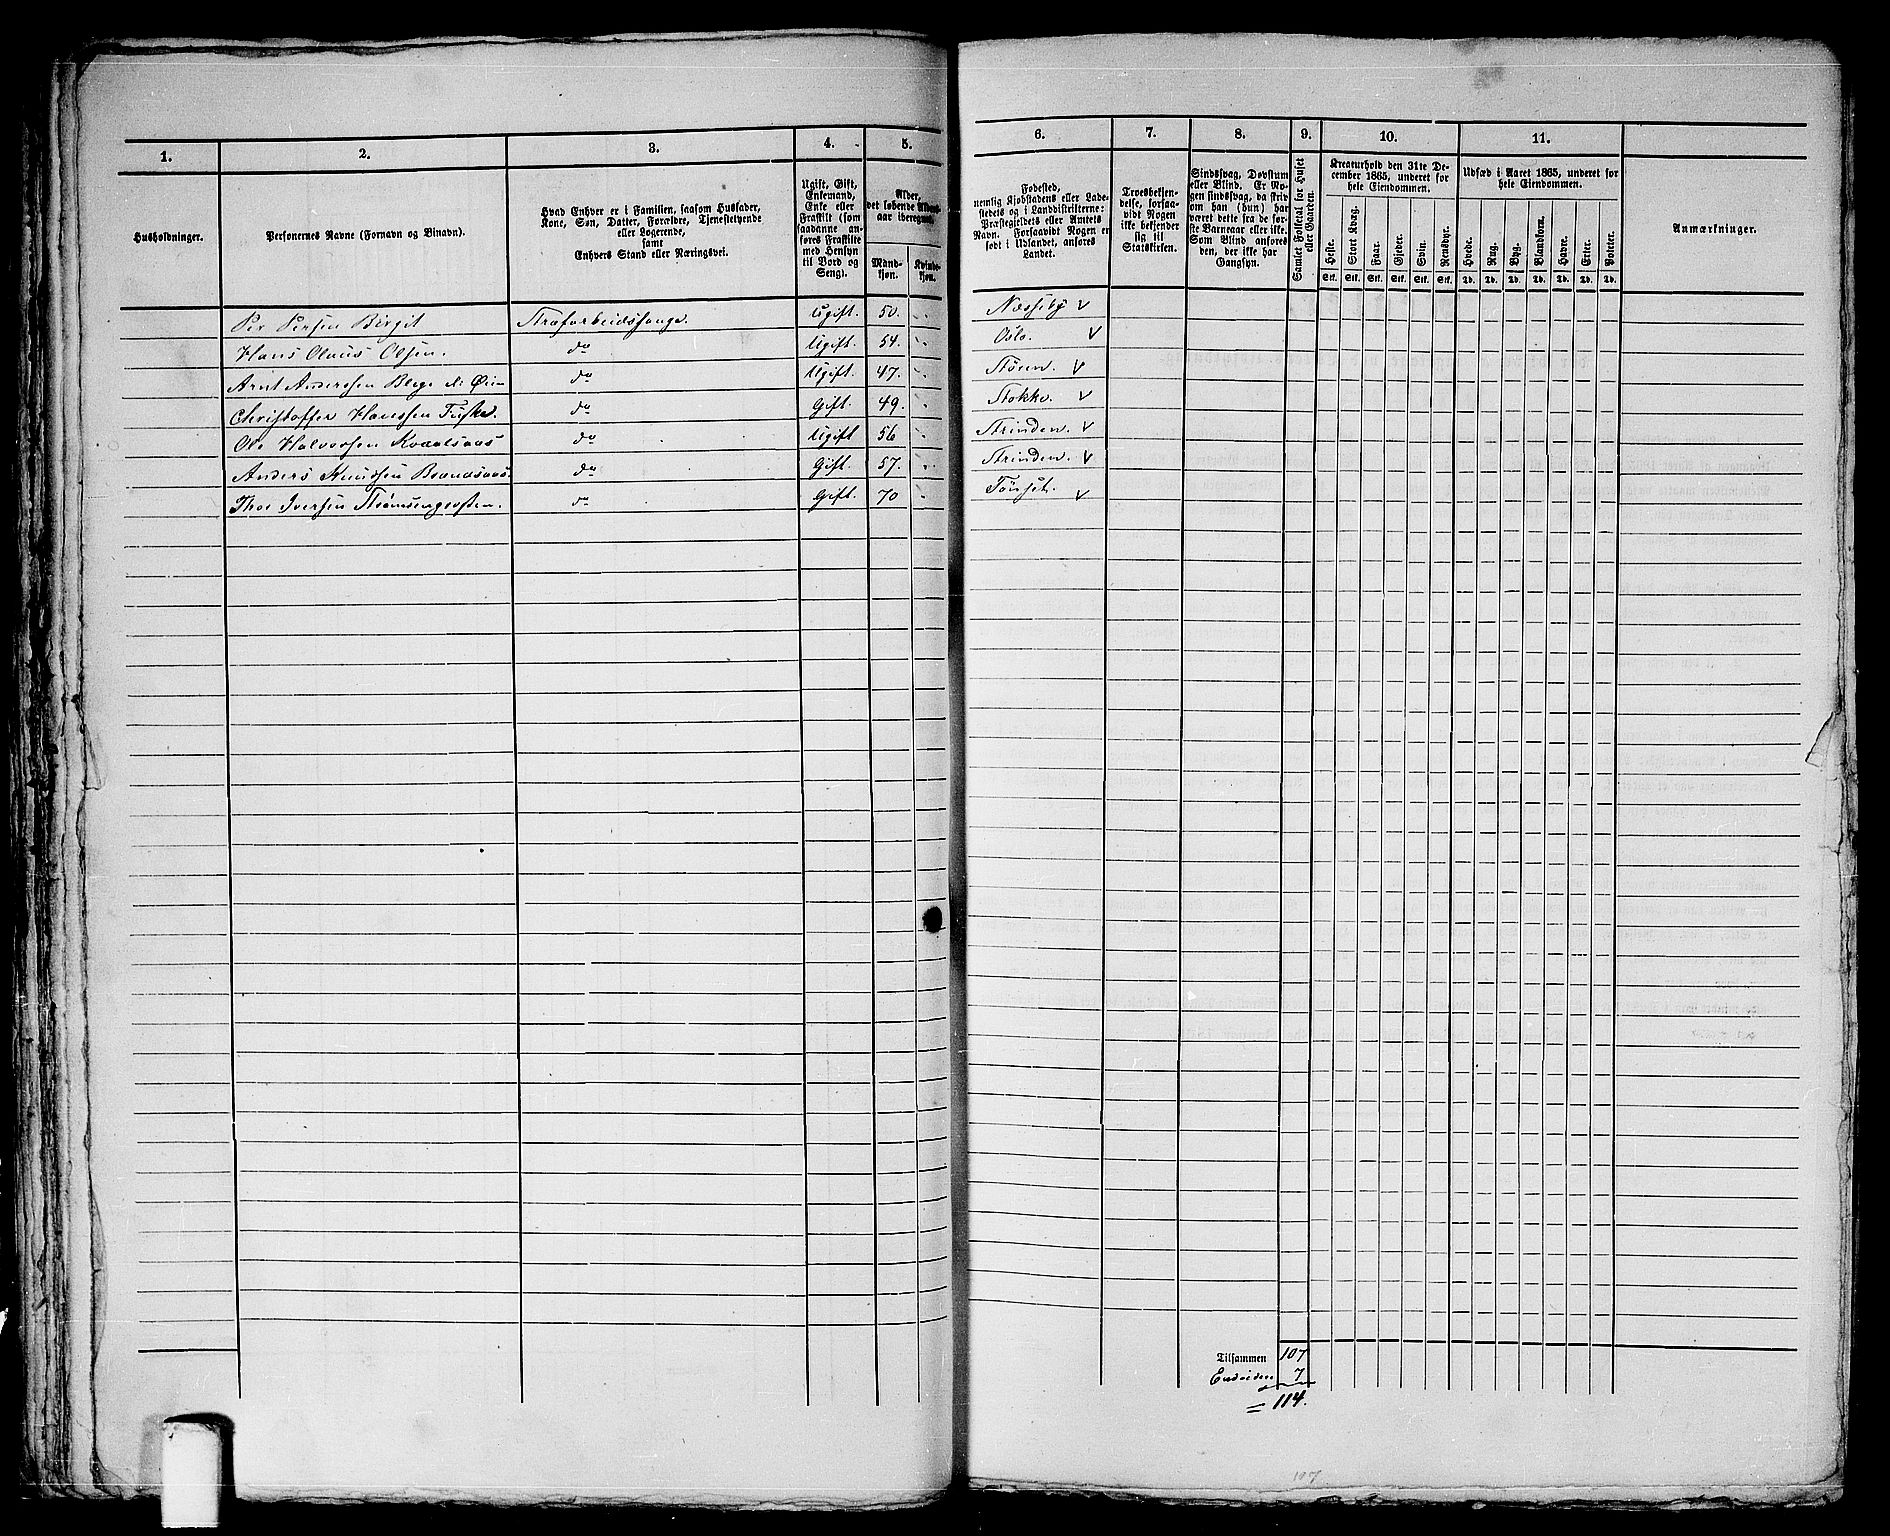 1. 2. 3. 4. 5. 6. 7. 8. 9. 10. 11.
Husholdninger.
Personernes Navne (Fornavn og Binavn).
Hvad Enhver er i Familien, saasom Husfader,
Kone, Søn, Datter, Forældre, Tjenestetyende
eller Logerende,
samt
Enhvers Stand eller Næringsvei.
Ugift, Gift,
Enkemand,
Enke eller
Fraskilt (som
saadanne an-
føres Fraskilte
med Hensyn
til Bord og
Seng).
Alder,
det løbende Alders-
aar iberegnet.
Mand-
kjøn.
Kvinde-
kjøn.
Fødested,
nemlig Kjøbstadens eller Lade-
stedets og i Landdistrikterne:
Præstegjeldets eller Amtets
Navn. Forsaavidt Nogen er
født i Udlandet, anføres
Landet.
Troesbekjen-
delse, forsaa-
vidt Nogen
ikke bekjender
sig til
Statskirken.
Sindssvag, Døvstum
eller Blind. Er No-
gen sindssvag, da skriv
om han (hun) har
været dette fra de før-
ste Barneaar eller ikke.
Som Blind anføres
den, der ikke har
Gangsyn.
Samlet Folketal for Huset
eller Gaarden.
Kreaturhold den 31te De-
cember 1865, underet for
hele Eiendommen.
Heste. Stort Kvæg. Faar. Gjeder. Svin. Rensdyr.
Stk. Stk. Stk. Stk. Stk. Stk.
Udsæd i Aaret 1865, underet for
hele Eiendommen.
Hvede. Rug. Byg. Blandkorn. Havre. Erter. Poteter.
Td. Td. Td. Td. Td. Td. Td.
Anmærkninger.
Per Persen Birgit Strafarbeidsfange. Ugift. 50. Næsseby
Hans Claus Olsen. do Ugift. 54. Oslo.
Arnt Anderssen do Ugift. 47. Stören.
Christoffer Hanssen do Gift. 49. Stokke.
Ole Halvorsen Kvaalsaas do Ugift 56 Strinden.
Anders Knudsen do Gift. 57. Strinden.
Iversen do Gift. 70 Tönset.
Tilsammen 107
7
= 114.
107